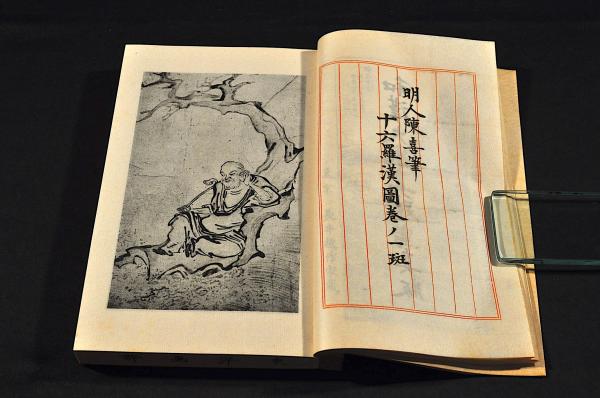 明人陳喜筆
十六羅漢圖卷ノ一斑